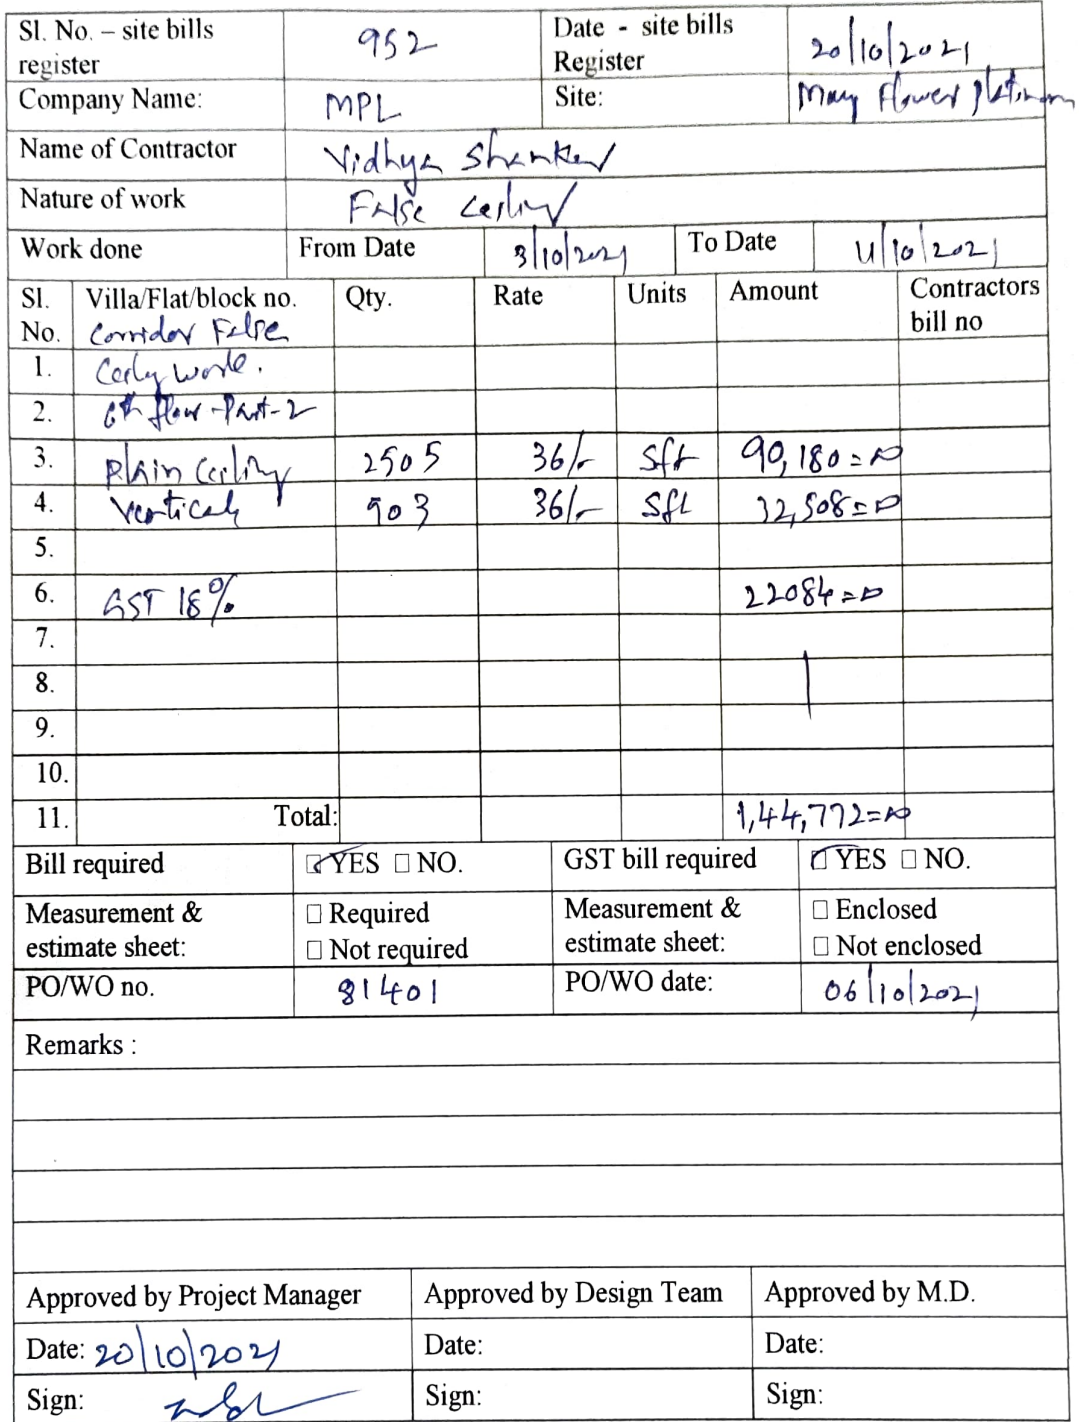 Sl. No. – site bills register 952 Date - site bills Register 20/10/2021
Company Name: MPL Site: May Flower Platinum
Name of Contractor Vidhya Shanker
Nature of work False Ceiling
Work done From Date 3/10/2021 To Date 11/10/2021
Sl. No. Villa/Flat/block no. Qty. Rate Units Amount Contractors bill no
Corridor False
1. Ceiling work.
2. 6th floor - Part-2
3. Plain Ceiling 2505 36/- Sft 90,180=00
4. Vertical 903 36/- Sft 32,508=00
5.
6. GST 18% 22084=00
7.
8.
9.
10.
11. Total: 1,44,772=00
Bill required ☑ YES □ NO. GST bill required ☑ YES □ NO.
Measurement & estimate sheet: □ Required □ Not required Measurement & estimate sheet: □ Enclosed □ Not enclosed
PO/WO no. 81401 PO/WO date: 06/10/2021
Remarks :
Approved by Project Manager Approved by Design Team Approved by M.D.
Date: 20/10/2021 Date: Date:
Sign: Sign: Sign: